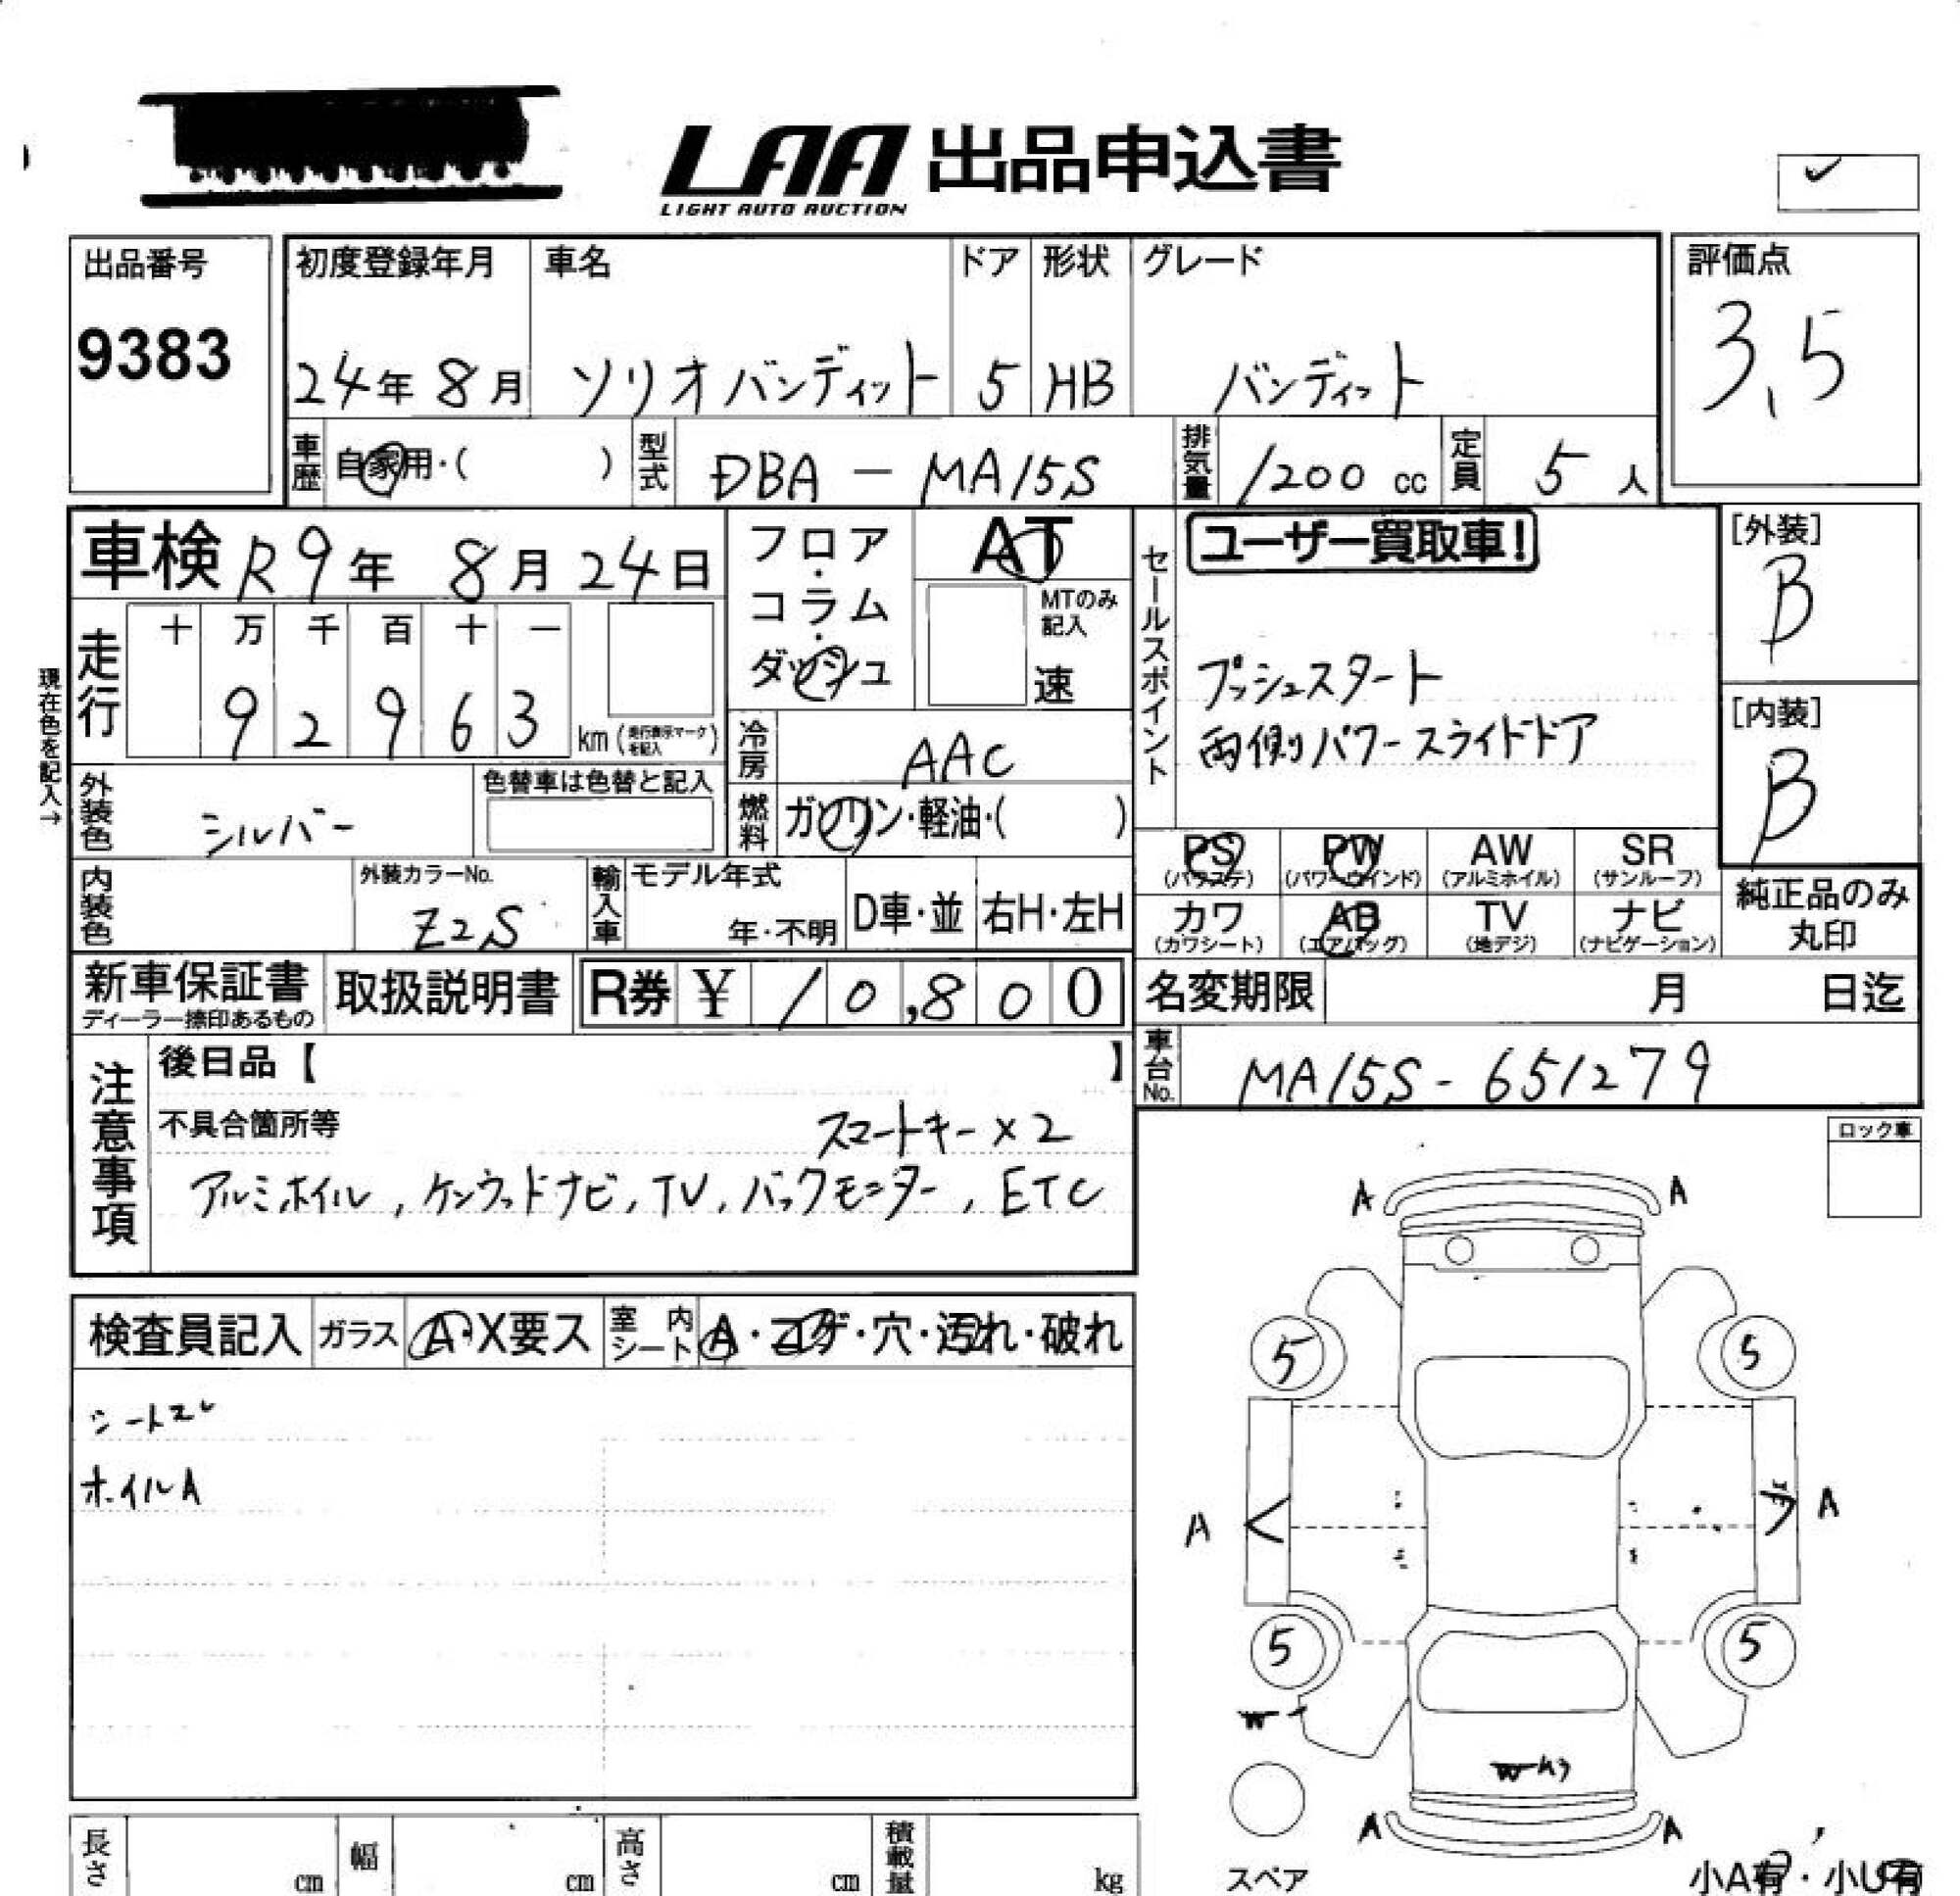 LAA 出品申込書
LIGHT AUTO AUCTION
出品番号
9383
初度登録年月
24年8月
車名
ソリオバンディット
ドア
5
形状
HB
グレード
バンディット
評価点
3,5
車歴 自家用・( )
型式 DBA - MA15S
排気量 1200 cc
定員 5人
車検 R9年 8月24日
フロア・コラム・ダッシュ
AT
MTのみ記入
速
セールスポイント
ユーザー買取車!
プッシュスタート
両側パワースライドドア
[外装]
B
[内装]
B
走行
十 万 千 百 十 一
9 2 9 6 3 km (走行表示マークを記入)
現在色を記入→
冷房 AAC
外装色 シルバー
色替車は色替と記入
燃料 ガソリン・軽油・( )
PS (パワステ)
PW (パワーウインド)
AW (アルミホイル)
SR (サンルーフ)
カワ (カワシート)
AB (エアバッグ)
TV (地デジ)
ナビ (ナビゲーション)
純正品のみ丸印
内装色
外装カラーNo.
Z2S
輸入車 モデル年式
年・不明
D車・並
右H・左H
新車保証書
ディーラー捺印あるもの
取扱説明書
R券 ¥ 10,800
名変期限 月 日迄
車台No. MA15S - 651279
注意事項
後日品【 】
不具合箇所等
スマートキー×2
アルミホイル, ケンウッドナビ, TV, バックモニター, ETC
ロック車
検査員記入
ガラス A・X要ス
室内シート A・コゲ・穴・汚れ・破れ
ホイルA
A A
5 5
A A
5 5
A A
スペア
小A有・小U有
長さ cm
幅 cm
高さ cm
積載量 kg